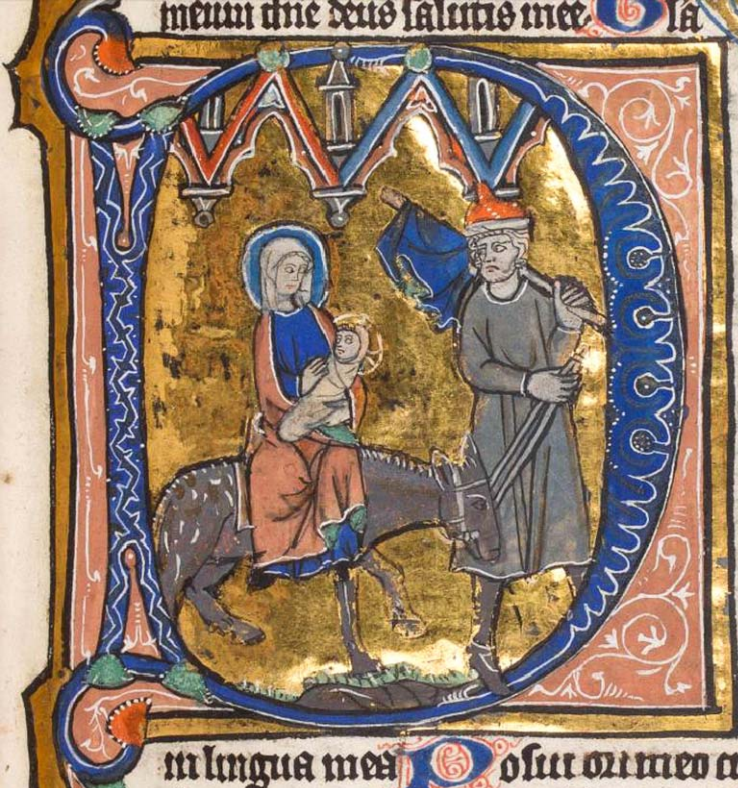 meum dne deus salutis mee Gla
D
in lingua mea Posui ori meo c